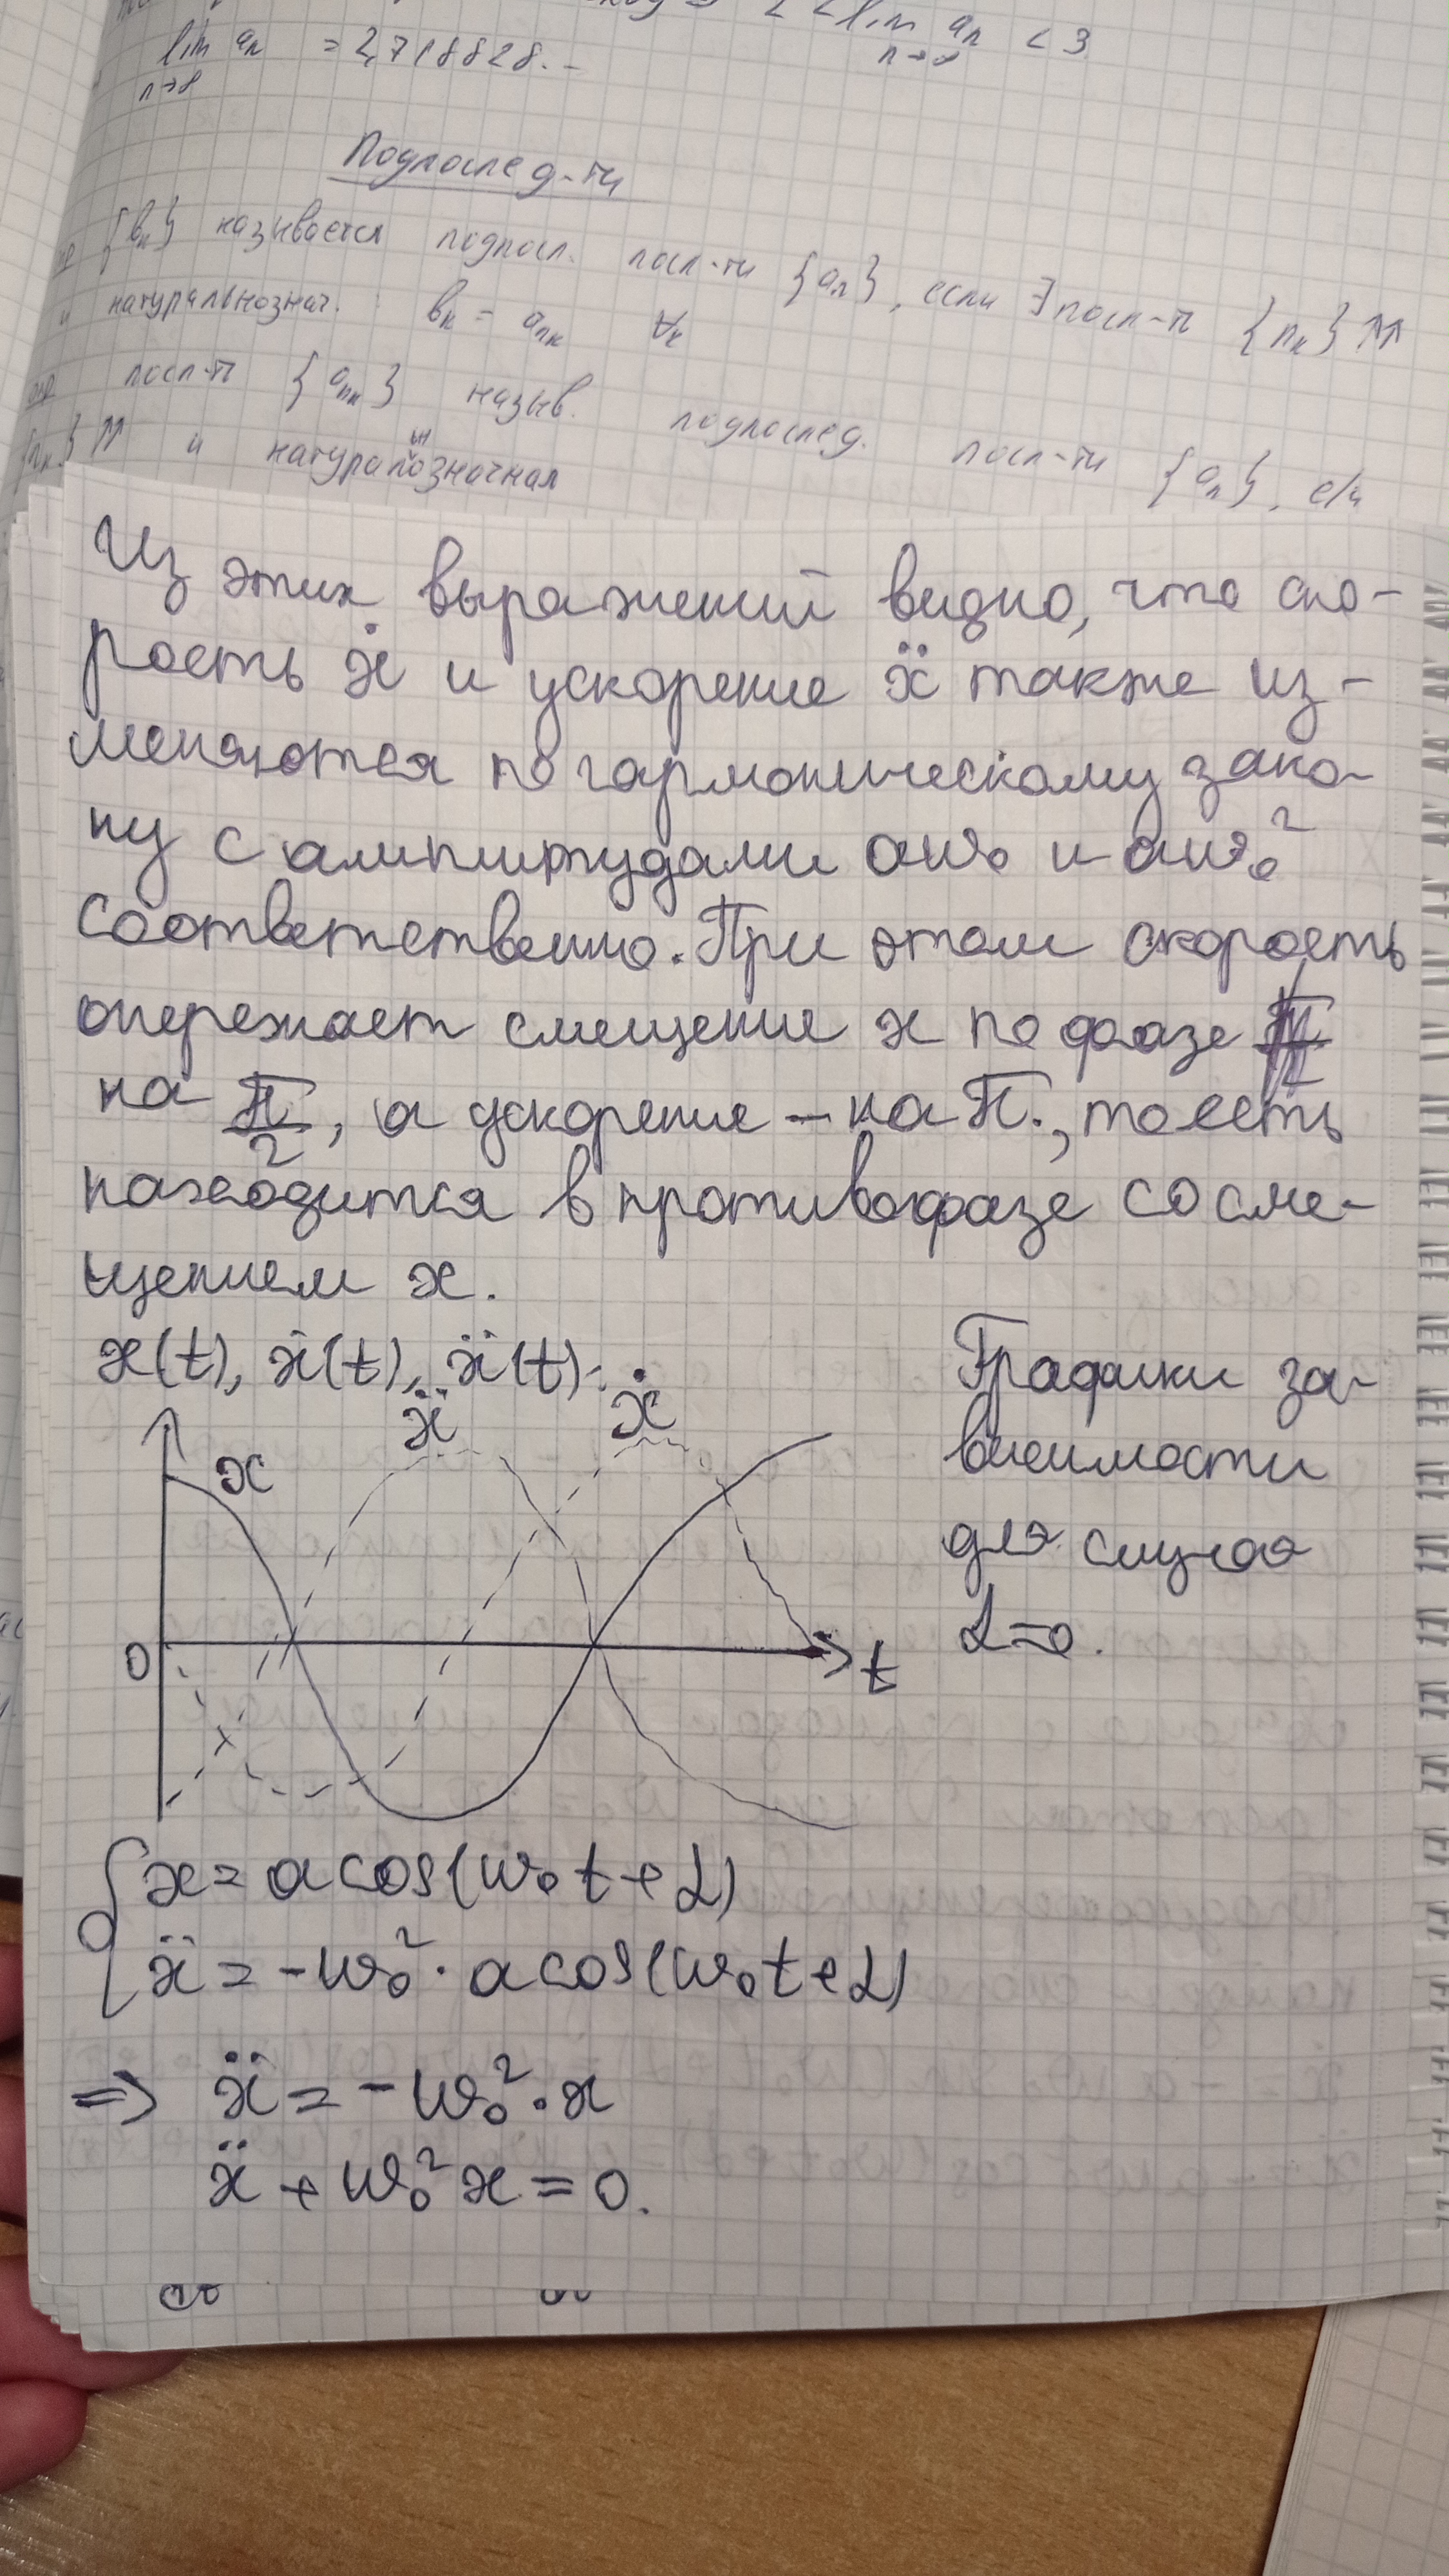 lim aₙ = 2,718828..
n→∞
lim aₙ < 3
n→∞
Подпослед-ти
{bₖ} называется подпосл. посл-ти {aₙ}, если ∃ посл-ть {nₖ} ⇈
и натуральнознач. : bₖ = aₙₖ ∀ₖ
посл-ть {aₙₖ} назыв. подпослед. посл-ти {aₙ}, если
{nₖ} ⇈ и натуральнозначная
Из этих выражений видно, что ско-
рость ẋ и ускорение ẍ также из-
меняются по гармоническому зако-
ну с амплитудами aω₀ и aω₀²
соответственно. При этом скорость
опережает смещение x по фазе
на π/2, а ускорение – на π., то есть
находится в противофазе со сме-
щением x.
x(t), ẋ(t), ẍ(t):
Графики за-
висимости
для случая
α=0.
ẍ ẋ
x
0 t
{ x = a cos(ω₀t+α)
ẍ = -ω₀² · a cos(ω₀t+α)
=> ẍ = -ω₀² · x
ẍ + ω₀² x = 0.